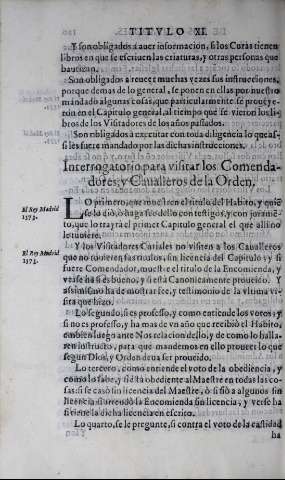 TITVLO XI.
Y son obligados a auer informacion, si los Curas tienen
libros en que se escriuen las criaturas, y otras personas que
bautizan.
Son obligados a reueer muchas vezes sus instrucciones,
porque demas de lo general, se ponen en ellas por nuestro
mandado algunas cosas, que particularmente se prouẽyeron
en el Capitulo general, al tiempo que se vieron los libros
de los Visitadores de los años passados.
Son obligados à executar con toda diligencia lo que assi
les fuere mandado por las dichas instrucciones.
Interrogatorio para visitar los Comenda-
dores, y Caualleros de la Orden,
El Rey Madrid
1573.
LO primero, que muestren el titulo del Habito, y quien
se lo diò, ò haga fee dello con testigos, y con juramento,
que lo traerà el primer Capitulo general el que alli no
le tuuiere.
El Rey Madrid
1573.
Y los Visitadores Curiales no visiten a los Caualleros
que no tuuieren sus titulos, sin licencia del Capitulo: y si
fuere Comendador, muestre el titulo de la Encomienda, y
verse ha si es bueno, y si està Canonicamente proueido. Y
assimismo ha de mostrar fee, y testimonio de la vltima vi-
sita que hizo.
Lo segundo, si es professo, y como entiende los votos: y
si no es professo, y ha mas de vn año que recibiò el Habito,
embien luego ante Nos relacion dello, y de como lo halla-
ren instructo, para que mandemos en ello proueer lo que
segun Dios, y Orden deua ser proueido.
Lo tercero, como entiende el voto de la obediencia, y
como lo sabe, y si està obediente al Maestre en todas las co-
sas: si se casò sin licencia del Maestre, ò si fiò a algunos sin
licencia: si arrendò la Encomienda sin licencia, y verse ha
si tiene la dicha licencia en escrito.
Lo quarto, se le pregunte, si contra el voto de la castidad
ha